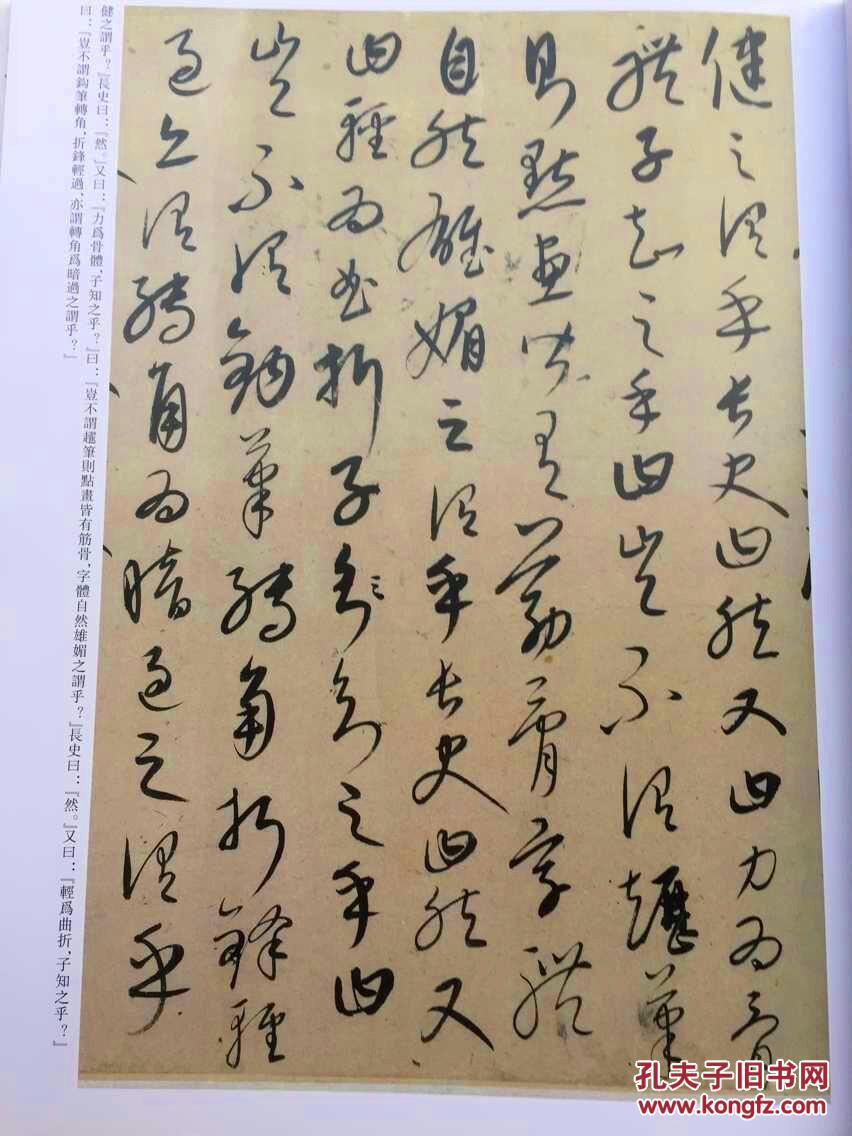 健之謂乎長史曰然又曰力為骨
體子知之乎曰豈不謂趯筆
則點畫皆有筋骨字體
自然雄媚之謂乎長史曰然又
曰輕為曲折子知之乎曰
豈不謂鈎筆轉角折鋒輕
過亦謂轉角為暗過之謂乎
健之謂乎？』長史曰：『然。』又曰：『力爲骨體，子知之乎？』曰：『豈不謂趯筆則點畫皆有筋骨，字體自然雄媚之謂乎？』長史曰：『然。』又曰：『輕爲曲折，子知之乎？』
曰：『豈不謂鈎筆轉角，折鋒輕過，亦謂轉角爲暗過之謂乎？』
孔夫子旧书网
www.kongfz.com